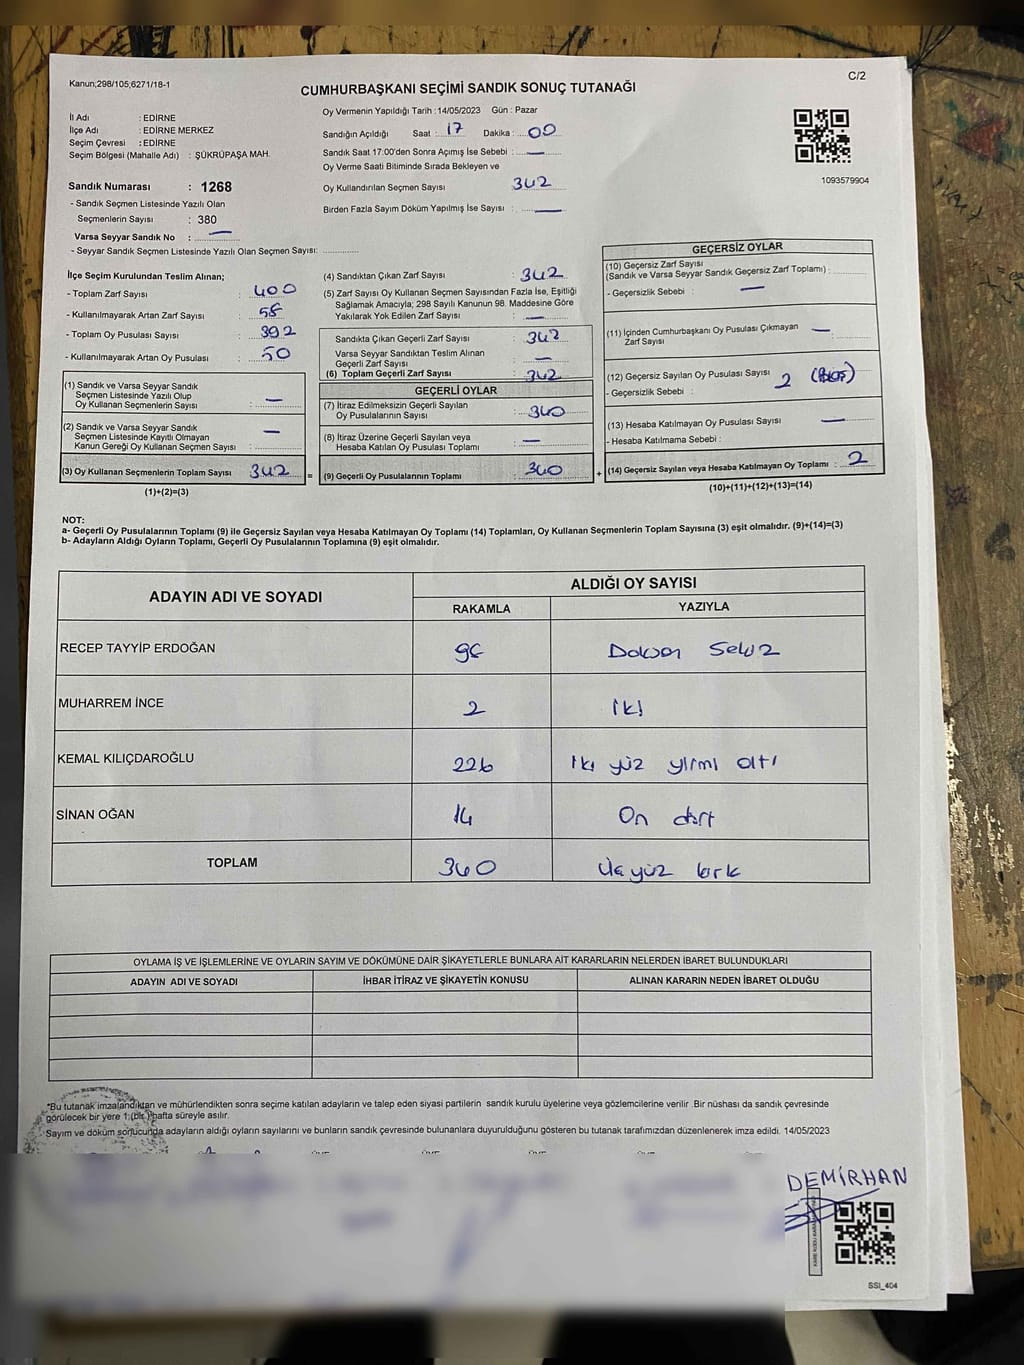 Kanun;298/105;6271/18-1
C/2
CUMHURBAŞKANI SEÇİMİ SANDIK SONUÇ TUTANAĞI
İl Adı : EDİRNE
İlçe Adı : EDİRNE MERKEZ
Seçim Çevresi : EDİRNE
Seçim Bölgesi (Mahalle Adı) : ŞÜKRÜPAŞA MAH.
Oy Vermenin Yapıldığı Tarih : 14/05/2023 Gün : Pazar
Sandığın Açıldığı Saat : 17 Dakika : 00
Sandık Saat 17:00'den Sonra Açımış İse Sebebi : —
Oy Verme Saati Bitiminde Sırada Bekleyen ve
Oy Kullandırılan Seçmen Sayısı 342
Birden Fazla Sayım Döküm Yapılmış İse Sayısı : —
1093579904
Sandık Numarası : 1268
- Sandık Seçmen Listesinde Yazılı Olan
Seçmenlerin Sayısı : 380
Varsa Seyyar Sandık No : —
- Seyyar Sandık Seçmen Listesinde Yazılı Olan Seçmen Sayısı:
İlçe Seçim Kurulundan Teslim Alınan;
- Toplam Zarf Sayısı : 400
- Kullanılmayarak Artan Zarf Sayısı : 58
- Toplam Oy Pusulası Sayısı : 392
- Kullanılmayarak Artan Oy Pusulası : 50
(1) Sandık ve Varsa Seyyar Sandık
Seçmen Listesinde Yazılı Olup
Oy Kullanan Seçmenlerin Sayısı : —
(2) Sandık ve Varsa Seyyar Sandık
Seçmen Listesinde Kayıtlı Olmayan
Kanun Gereği Oy Kullanan Seçmen Sayısı : —
(3) Oy Kullanan Seçmenlerin Toplam Sayısı 342 =
(1)+(2)=(3)
(4) Sandıktan Çıkan Zarf Sayısı : 342
(5) Zarf Sayısı Oy Kullanan Seçmen Sayısından Fazla İse, Eşitliği
Sağlamak Amacıyla; 298 Sayılı Kanunun 98. Maddesine Göre
Yakılarak Yok Edilen Zarf Sayısı : —
Sandıkta Çıkan Geçerli Zarf Sayısı : 342
Varsa Seyyar Sandıktan Teslim Alınan
Geçerli Zarf Sayısı : —
(6) Toplam Geçerli Zarf Sayısı : 342
GEÇERLİ OYLAR
(7) İtiraz Edilmeksizin Geçerli Sayılan
Oy Pusulalarının Sayısı : 340
(8) İtiraz Üzerine Geçerli Sayılan veya
Hesaba Katılan Oy Pusulası Toplamı : —
(9) Geçerli Oy Pusulalarının Toplamı : 340 +
GEÇERSİZ OYLAR
(10) Geçersiz Zarf Sayısı
(Sandık ve Varsa Seyyar Sandık Geçersiz Zarf Toplamı) :
- Geçersizlik Sebebi : —
(11) İçinden Cumhurbaşkanı Oy Pusulası Çıkmayan
Zarf Sayısı : —
(12) Geçersiz Sayılan Oy Pusulası Sayısı : 2
- Geçersizlik Sebebi :
(13) Hesaba Katılmayan Oy Pusulası Sayısı —
- Hesaba Katılmama Sebebi :
(14) Geçersiz Sayılan veya Hesaba Katılmayan Oy Toplamı : 2
(10)+(11)+(12)+(13)=(14)
NOT:
a- Geçerli Oy Pusulalarının Toplamı (9) ile Geçersiz Sayılan veya Hesaba Katılmayan Oy Toplamı (14) Toplamları, Oy Kullanan Seçmenlerin Toplam Sayısına (3) eşit olmalıdır. (9)+(14)=(3)
b- Adayların Aldığı Oyların Toplamı, Geçerli Oy Pusulalarının Toplamına (9) eşit olmalıdır.
ADAYIN ADI VE SOYADI
ALDIĞI OY SAYISI
RAKAMLA YAZIYLA
RECEP TAYYİP ERDOĞAN 98 Doksan Sekiz
MUHARREM İNCE 2 İki
KEMAL KILIÇDAROĞLU 226 İki yüz yirmi altı
SİNAN OĞAN 14 On dört
TOPLAM 340 Üç yüz kırk
OYLAMA İŞ VE İŞLEMLERİNE VE OYLARIN SAYIM VE DÖKÜMÜNE DAİR ŞİKAYETLERLE BUNLARA AİT KARARLARIN NELERDEN İBARET BULUNDUKLARI
ADAYIN ADI VE SOYADI İHBAR İTİRAZ VE ŞİKAYETİN KONUSU ALINAN KARARIN NEDEN İBARET OLDUĞU
"Bu tutanak imzalandıktan ve mühürlendikten sonra seçime katılan adayların ve talep eden siyasi partilerin sandık kurulu üyelerine veya gözlemcilerine verilir .Bir nüshası da sandık çevresinde
görülecek bir yere 1 (bir) hafta süreyle asılır.
Sayım ve döküm sonucunda adayların aldığı oyların sayılarını ve bunların sandık çevresinde bulunanlara duyurulduğunu gösteren bu tutanak tarafımızdan düzenlenerek imza edildi. 14/05/2023
DEMİRHAN
SSI_404